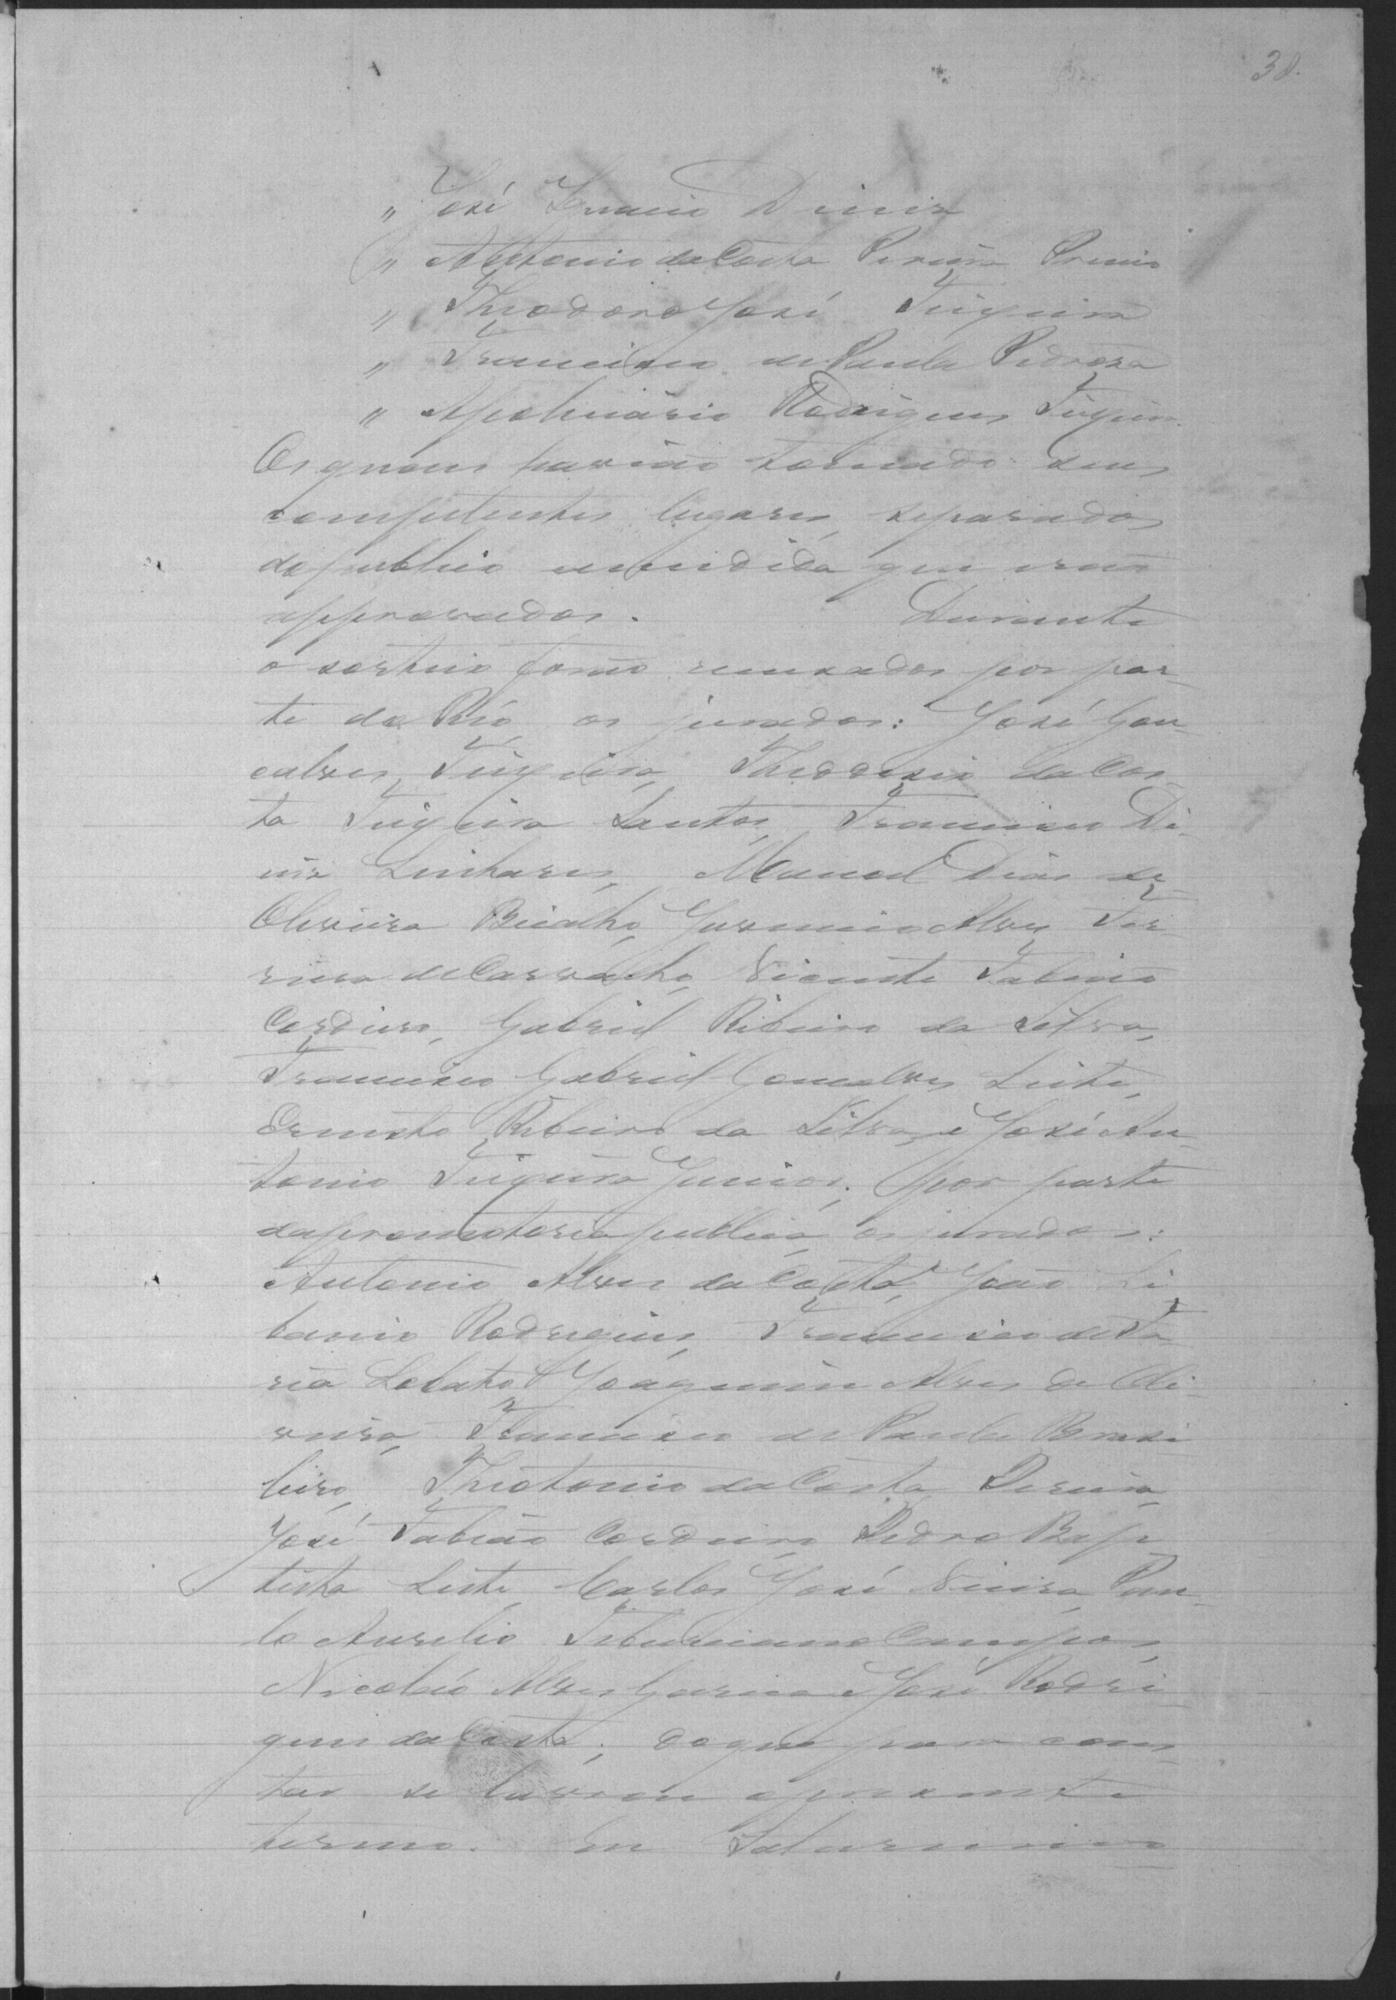 38.
" José Ignacio Diniz
" Antonio da Costa Pereira Primo
" Theodoro José Teixeira
" Francisco de Paula Pedroza
" Apolinário Rodrigues Teixeira
Os quaes havião tomado seus
competentes lugares, separados
do publico a medida que erão
approvados. Durante
o sorteio forão recusados por par-
te do Réo os jurados: José Gon-
calves Teixeira, Theodosio da Cos-
ta Teixeira Santos, Francisco Di-
niz Linhares, Manoel Dias de
Oliveira Bicalho, Juvencio Alves Fer
reira de Carvalho, Vicente Fabião
Cordeiro, Gabriel Ribeiro da Silva,
Francisco Gabriel Goncalves Leite,
Ernesto Ribeiro da Silva, e José An-
tonio Teixeira Junior; por parte
da promotoria publica, os jurados:
Antonio Alves da Costa, João Li
banio Rodrigues, Francisco de Fa
ria Lobato, Joaquim Alves de Oli-
veira, Francisco de Paula Brazi
leiro, Theotonio da Costa Pereira,
José Fabião Cordeiro, Pedro Bap-
tista Leite, Carlos José Vieira, Pau-
lo Aurelio Tiburciano Campos,
Nicoláo Alves Garcia e José Rodri-
gues da Costa; do que para cons-
tar se lavrou o presente
termo. Eu Saturnino